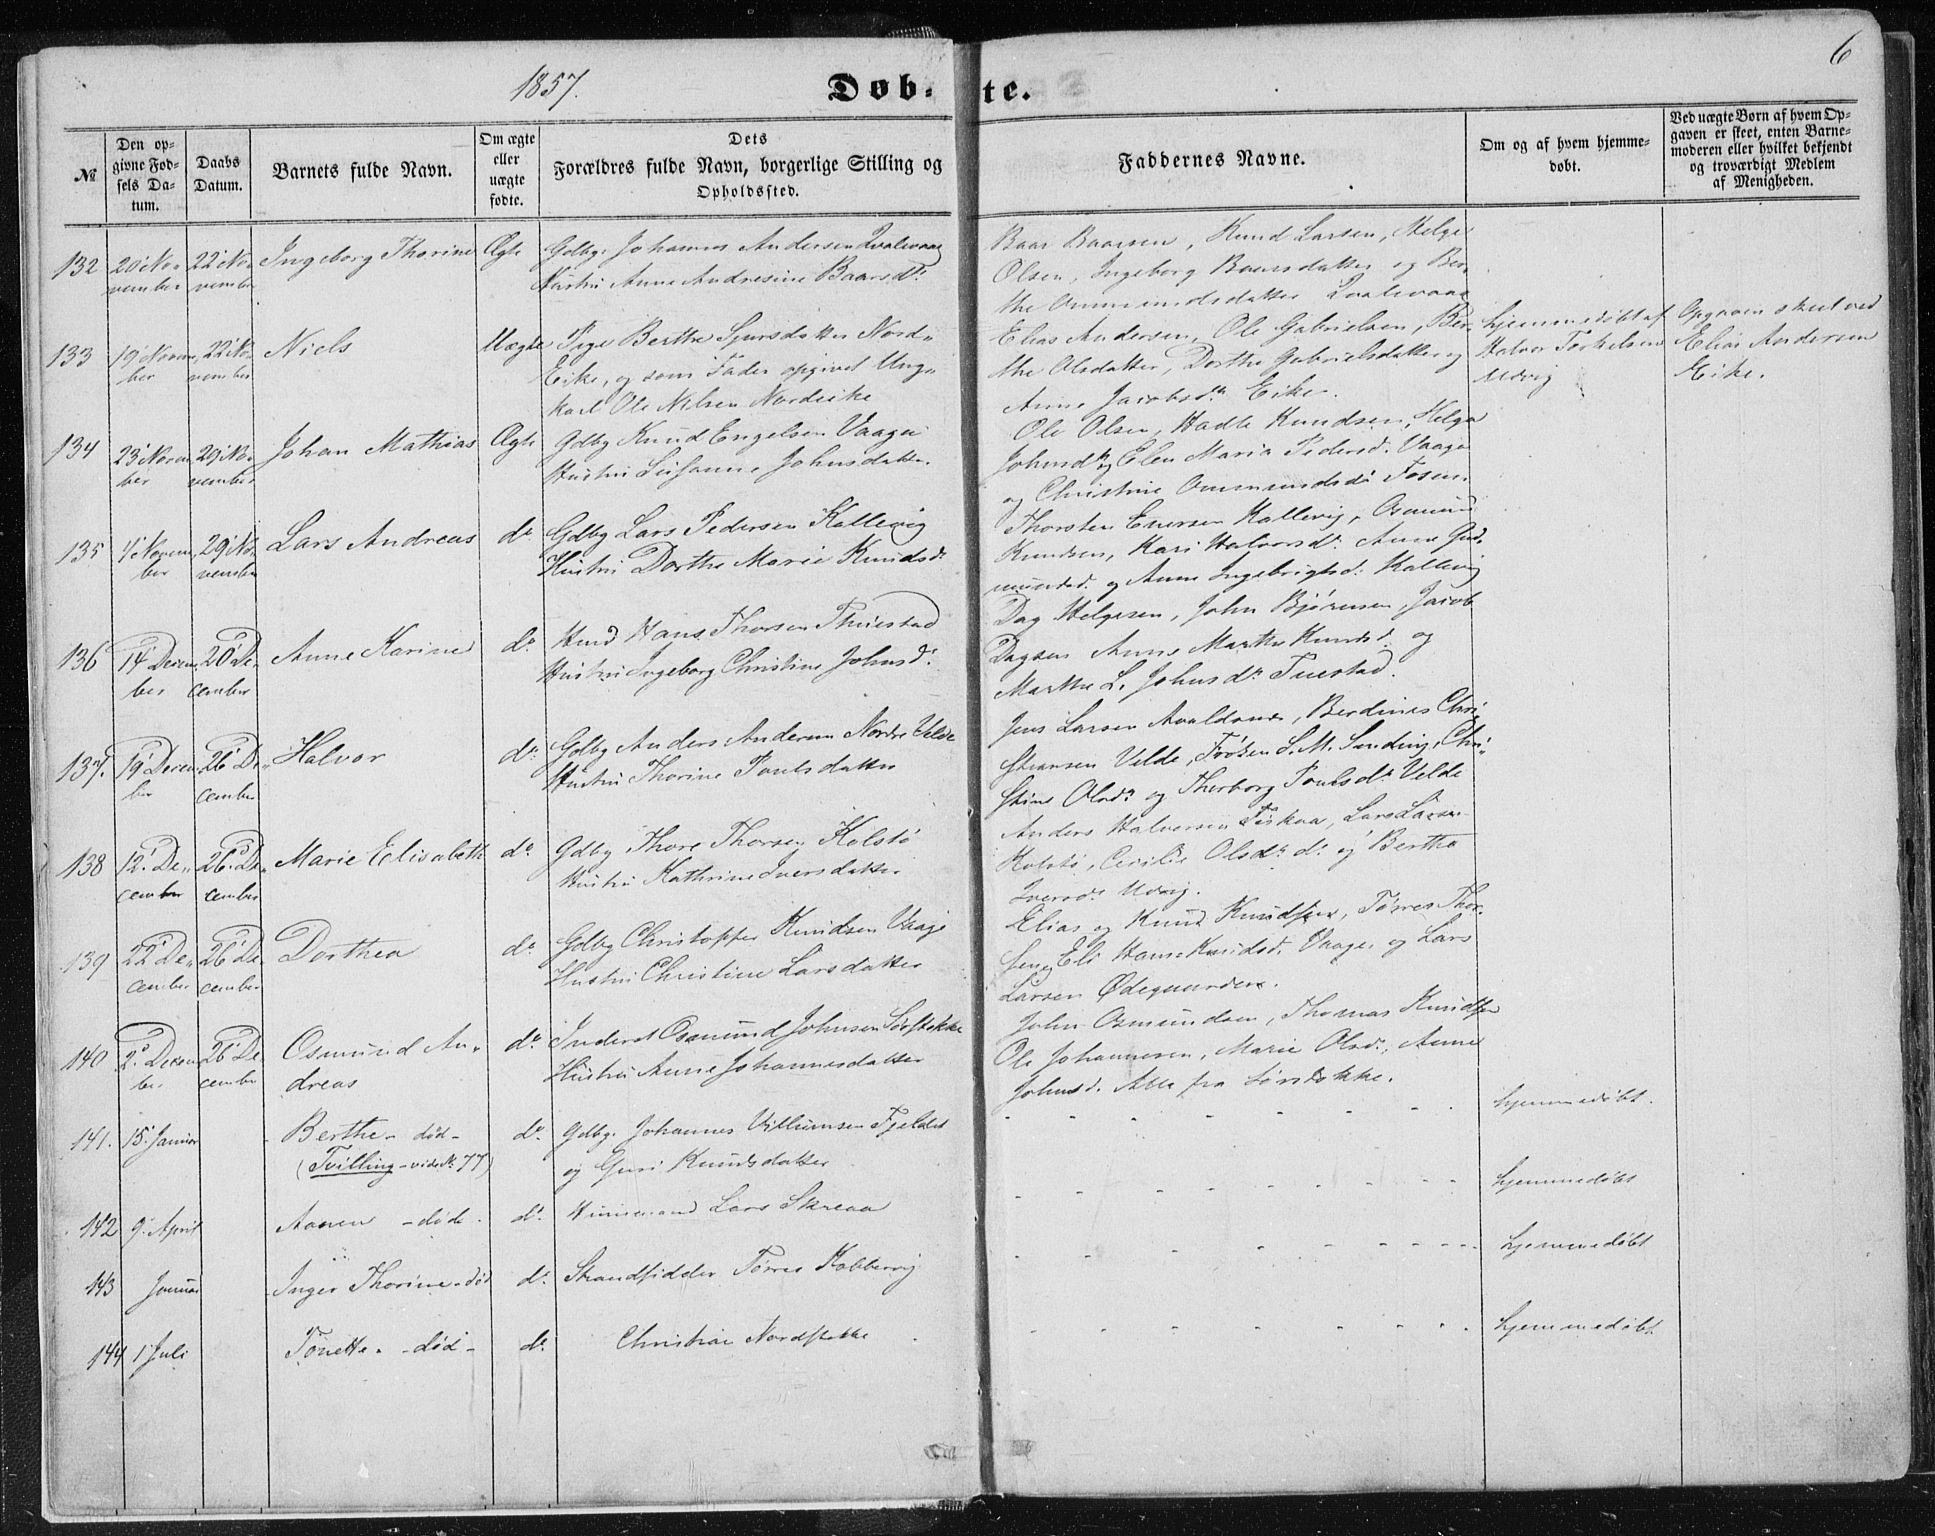 1857.
Døb-
te.
6
№
Den op-
givne Fød-
sels Da-
tum.
Daabs
Datum.
Barnets fulde Navn.
Om ægte
eller
uægte
fødte.
Dets
Forældres fulde Navn, borgerlige Stilling og
Opholdssted.
Faddernes Navne.
Om og af hvem hjemme-
døbt.
Ved uægte Børn af hvem Op-
gaven er skeet, enten Barne-
moderen eller hvilket bekjendt
og troværdigt Medlem
af Menigheden.
132
20 No-
vember
22 No-
vember
Ingeborg Thorine
Ægte
Gdbgr Johannes Andersen
Hustru Anne Andresine Baarsd.
Baar Baarsen, Knud Larsen, Helge
Olsen, Ingeborg Baarsdatter og Ber-
the Ommundsdatter
133
19 Novem-
ber
22 No-
vember
Niels
Uægte
Pige Berthe Sjursdatter Nord-
Eike, og som Fader opgivet Ung-
karl Ole Nilsen Nordeike
Elias Andersen, Ole Gabrielsen, Ber-
the Olsdatter, Dorthe Gabrielsdatter og
Anne Jacobsdr Eike.
hjemmedøbt af
Halvor Torkelsen
Udvig
Opgaven skeet ved
Elias Andersen
Eike.
134
23 Novem-
ber
29 No-
vember
Johan Mathias
Ægte
Gdbg Knud Engelsen Vaage
Hustru Johnsdatter
Ole Olsen, Knudsen, Helga
Johnsdr, Elen Maria Pedersd. Vaage
og Christine Ommundsd. Fosen
135
4 Novem-
ber
29 No-
vember
Lars Andreas
do
Gdbg Lars Pedersen Kallevig
Hustru Dorthe Marie Knudsd.
Thorsten Eversen Kallevig, Osmund
Knudsen, Kari Halvorsdr Anne Gud-
mundsd. og Anne Ingebrigtsd. Kallevig
136
14 Decem-
ber
20 De-
cember
Anne Karine
do
Hmd Hans Thorsen Thuestad
Hustru Ingeborg Christine Johnsd.
Dag Helgesen, John Bjørnsen, Jacob
Dagsen Anne Marthe Knudsd. og
Marthe L. Johnsdr Tuestad.
137.
19 Decem-
ber
26 De-
cember
Halvor
do
Gdbg Anders Andersen Nordre Velde
Hustru Thorine Poulsdatter
Jens Larsen Avaldsnes, Berdines Chri-
stiansen Velde, Frøken S. M. Sunding, Chri-
stine Olsdr og Thorborg Poulsdr Velde
138
12. De-
cember
26. De-
cember
Marie Elisabeth
do
Gdbg Thore Thorsen Kolstø
Hustru Kathrine Iversdatter
Anders Halversen Fiskaa, Lars Larsen
Kolstø, Cecilie Olsdr do og Berthe
Iversdr Udvig.
139
22 De-
cember
26 De-
cember
Dorthea
do
Gdbg Christopher Knudsen Vaage
Hustru Christine Larsdatter
Elias og Knud Knudsen, Tørres Thor-
sen, Eli Knudsd. Vaage, og Lars
Larsen Ødegaarden.
140
2. Decem-
ber
26 De-
cember
Osmund An-
dreas
do
Inderst Osmund Johnsen Sørstokke
Hustru Anne Johannesdatter
John Osmundsen, Thomas Knudsen
Ole Johannesen, Marie Olsd., Anne
Johnsd. Alle fra Sørstokke.
141.
15. Januar
Berthe - død -
(Tvilling - vide No 77)
do
Gdbgr. Johannes Villumsen Fjeldet
og Guri Knudsdatter
hjemmedøbt.
142
9. April
- døde
do
Huusmand Lars Skreaa
hjemmedøbt
143
Januar
Inger Thorine - død
do
Strandsidder Tørres
hjemmedøbt
144
1 Juli
Tonette - død -
do
Christian Nordstokke
hjemmedøbt